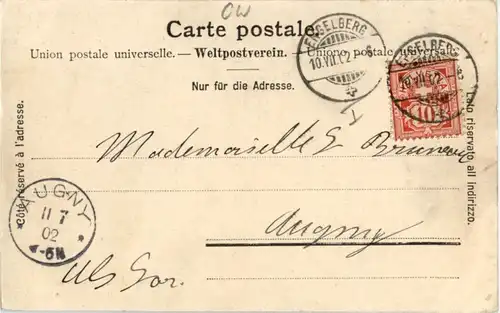 OW
Carte postale.
Union postale universelle. — Weltpostverein. — Unione postale universale
Nur für die Adresse.
Côté réservé à l'adresse.
Lato riservato all indirizzo.
ENGELBERG
10.VII.02
ENGELBERG
10.VII.02
10
Mademoiselle E
Augny
AUGNY
11 7
02
4-5N
Als Lor.